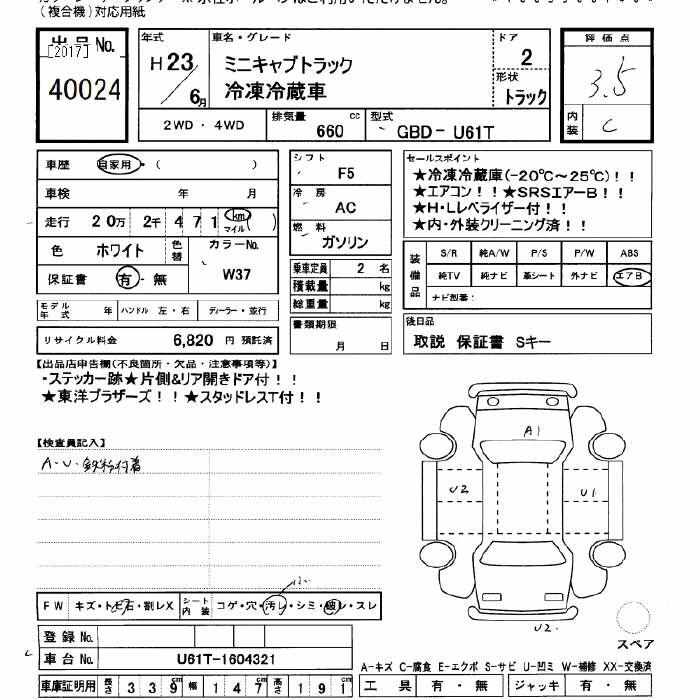 （複合機）対応用紙
出品No. [2017] 40024
年式 H23／6月
車名・グレード ミニキャブトラック 冷凍冷蔵車
ドア 2
形状 トラック
評価点 3.5
内装 C
2WD・4WD 排気量 660 cc 型式 GBD-U61T
車歴 自家用・（ ）
車検 年 月
走行 20万 2千 471 km マイル（ ）
色 ホワイト 色替 カラーNo. W37
保証書 有・無
シフト F5
冷房 AC
燃料 ガソリン
乗車定員 2 名
積載量 kg
総重量 kg
セールスポイント
★冷凍冷蔵庫（-20℃～25℃）！！
★エアコン！！★SRSエアーB！！
★H・Lレベライザー付！！
★内・外装クリーニング済！！
装備品 S/R 純A/W P/S P/W ABS
純TV 純ナビ 革シート 外ナビ エアB
ナビ型番：
モデル年式 年 ハンドル 左・右 ディーラー・並行
リサイクル料金 6,820 円 預託済
書類期限 月 日
後日品
取説 保証書 Sキー
【出品店申告欄（不良箇所・欠品・注意事項等）】
・ステッカー跡★片側&リア開きドア付！！
★東洋ブラザーズ！！★スタッドレスT付！！
【検査員記入】
A・U・鉄粉付着
A1
U2
U1
U2・
スペア
FW キズ・トビ石・割レX シート内装 コゲ・穴・汚レ・シミ・破レ・スレ
小
登録No.
車台No. U61T-1604321
A-キズ C-腐食 E-エクボ S-サビ U-凹ミ W-補修 XX-交換済
車庫証明用 長さ 339 cm 幅 147 cm 高さ 191 cm
工具 有・無 ジャッキ 有・無